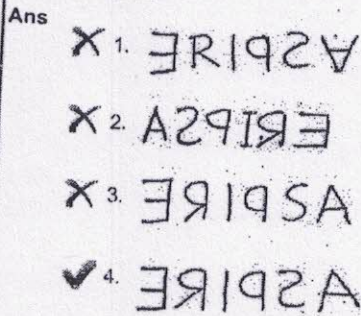 Ans
✗ 1. ƎRIꟼƧ∀
✗ 2. AƧꟼIЯƎ
✗ 3. ƎЯIꟼSA
✔ 4. ƎЯIꟼƧA